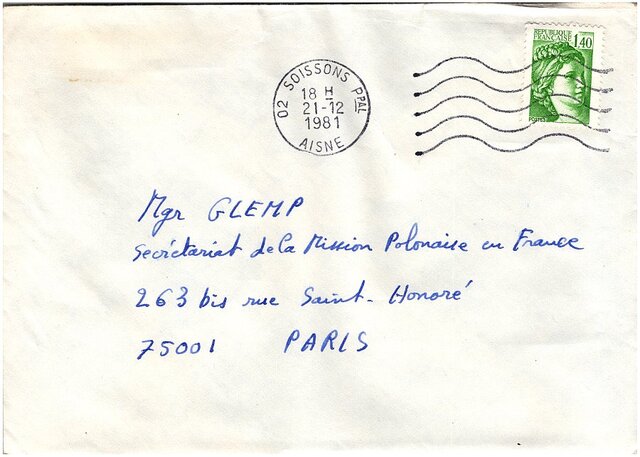 RÉPUBLIQUE
FRANÇAISE 1,40
02 SOISSONS PPAL
18 H
21-12
1981
AISNE
Mgr GLEMP
Secrétariat de la Mission Polonaise en France
263 bis rue Saint-Honoré
75001 PARIS